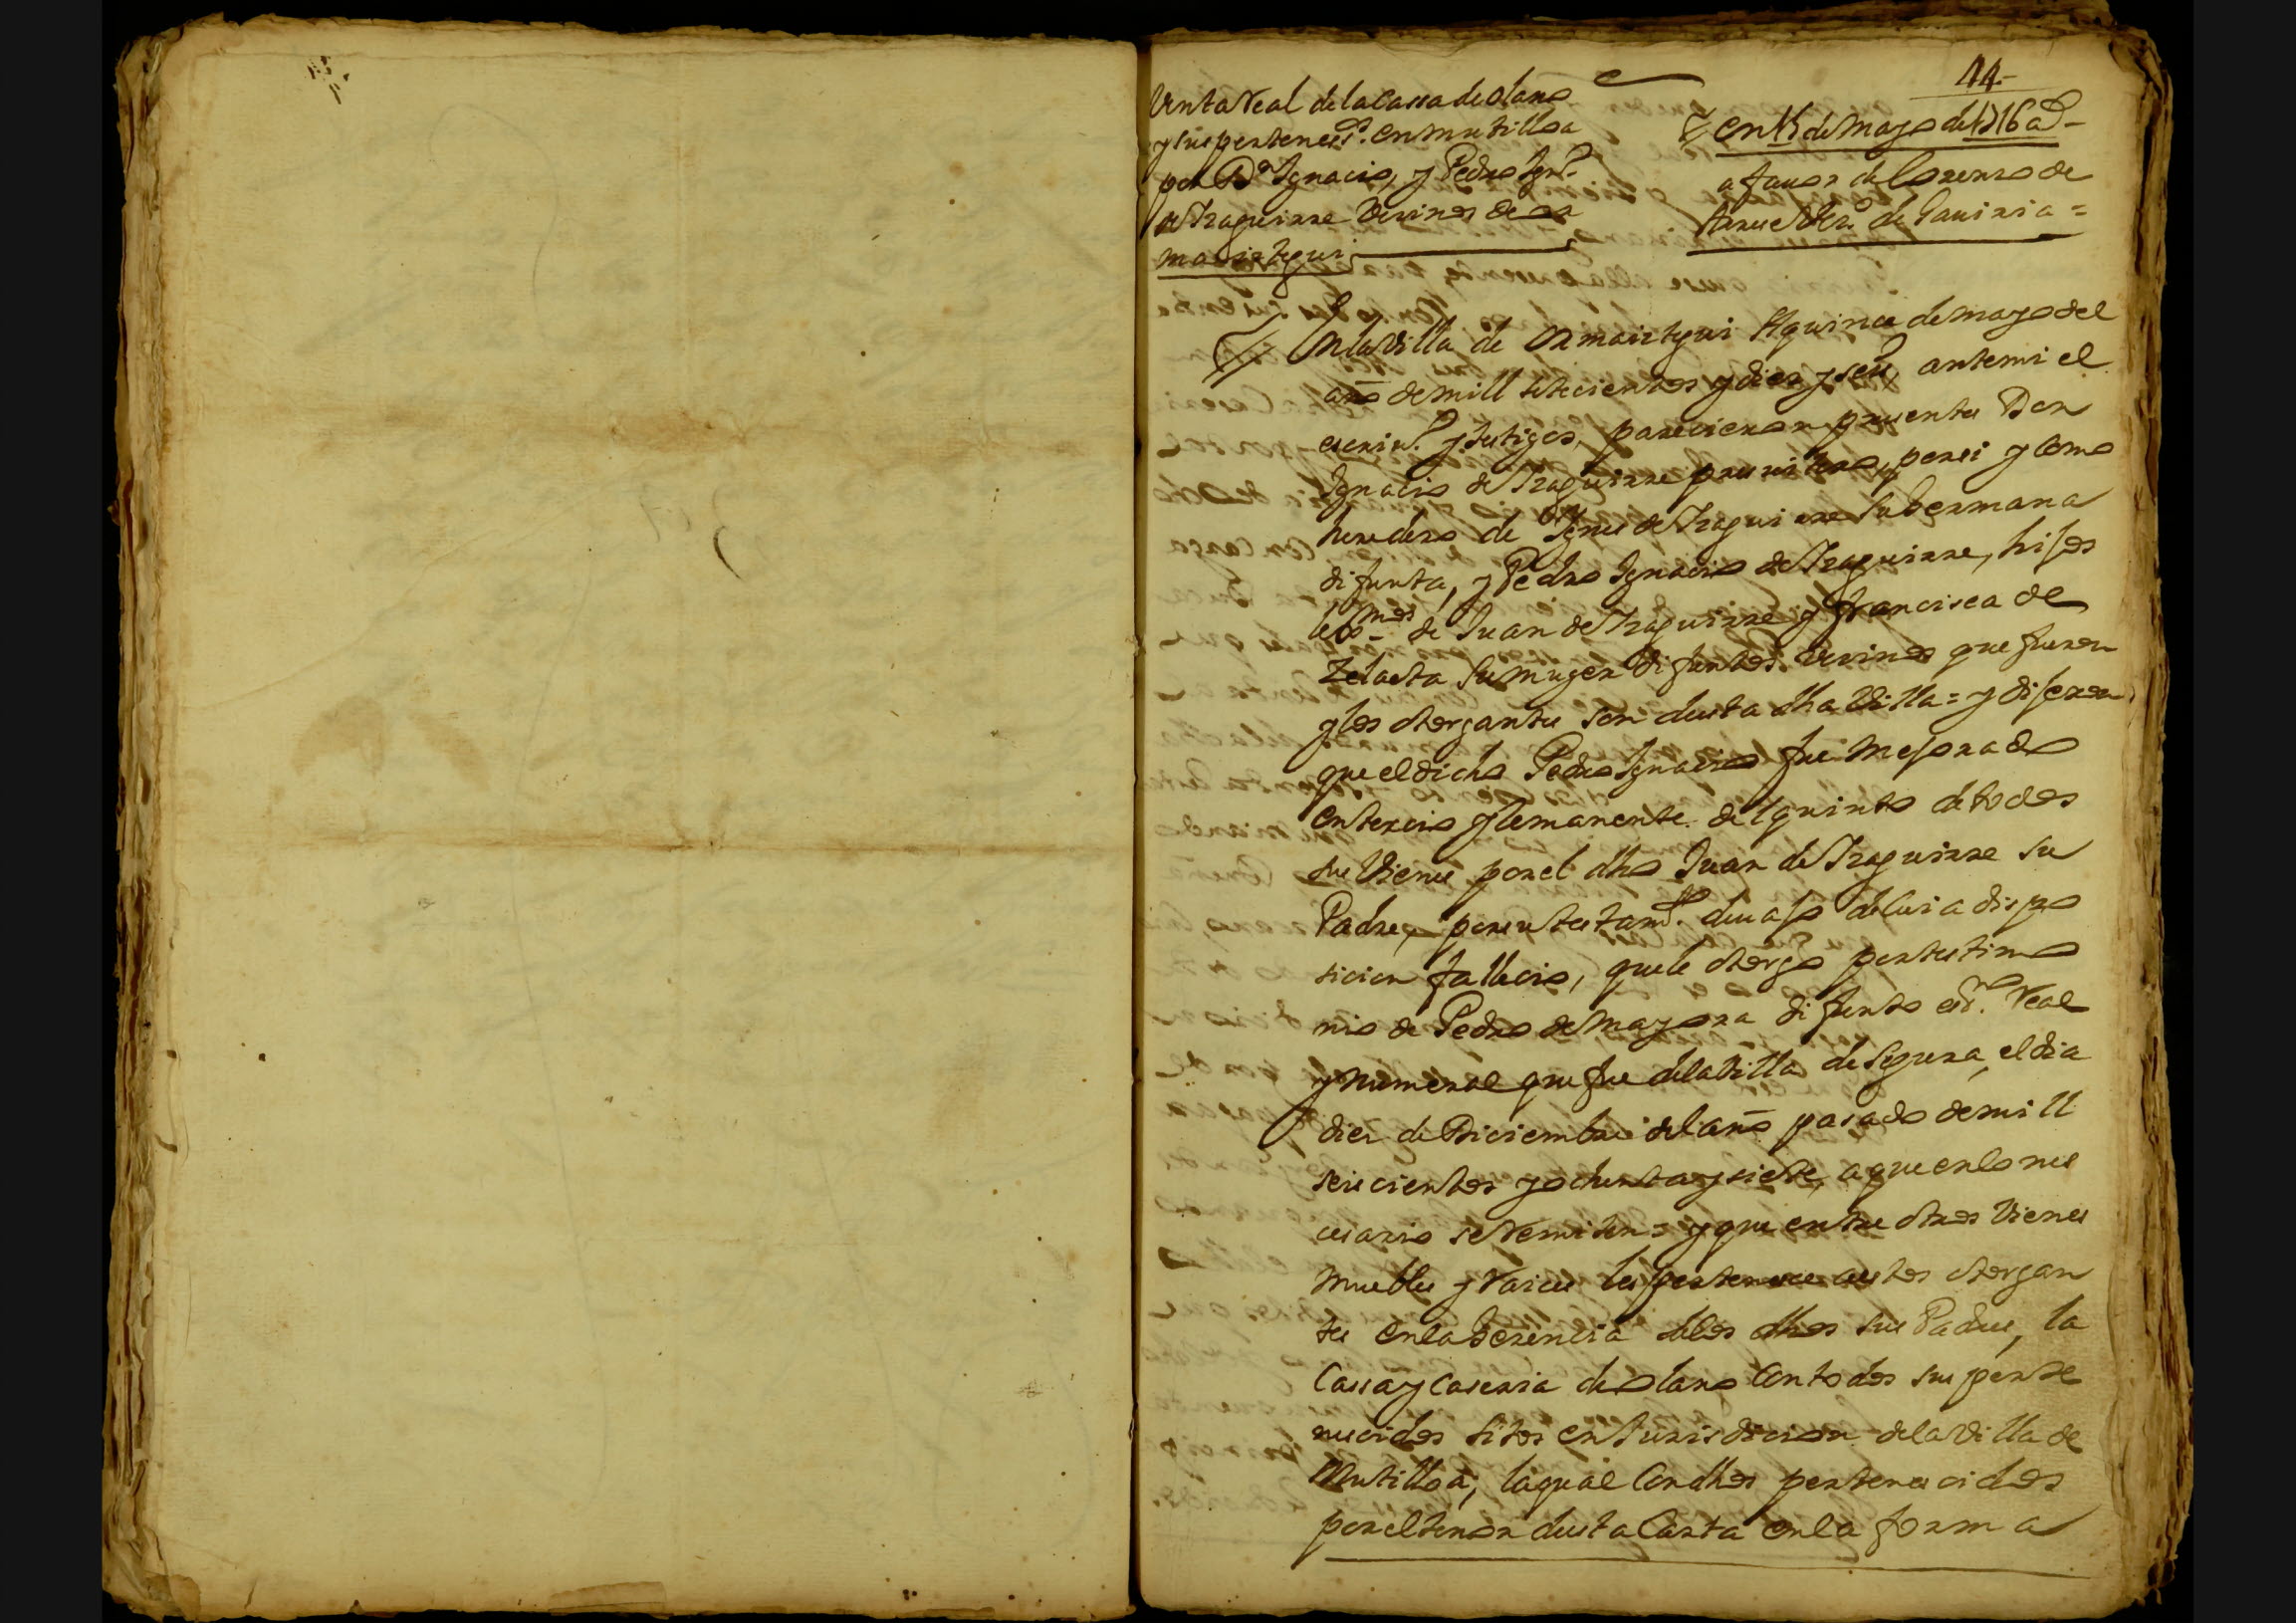 44-
Venta Real de la Cassa de olano
y sus pertenecis. en mutilloa
por Dn Ignacio, y Pedro Ignº
de Yraguirre Vecinos de or
maiztegui
En 15 de Mayo de 1716 as-
a fauor de Lorenzo de
de Gauiria=
En la Villa de Ormaiztegui A quince de mayo del
año de mill setecientos y diez y seis, ante mi el
escriuº. y testigos, parecieron presentes Don
Ignacio de Yraguirre presuitero, por si y como
heredero de Ignes de Yraguirre su hermana
difunta, y Pedro Ignacio de Yraguirre, hijos
legmos de Juan de Yraguirre y francisca de
Zelaeta su muger difuntos Vecinos que fueron
y los otorgantes son desta dha Villa= y dijeron
que el dicho Pedro Ignacio fue mejorado
en tercio y remanente del quinto de todos
sus Vienes por el dho Juan de Yraguirre su
Padre, por su testamto. deuajo de cuia dispo
sicion fallecio, que le otorgo por testimo
nio de Pedro de Mayora difunto essno. Real
y numeral que fue de la Villa de Segura, el dia
diez de Diciembre del año pasado de mill
seiscientos y ochenta y siete, a que en lo nes
cesario se remiten= y que entre otros Vienes
muebles y raices les pertenece a estos otorgan
tes en la herencia de los dhos sus Padres, la
Cassa y Caseria de olano Con todos sus perte
necidos sitos en Jurisdicion de la Villa de
Mutilloa, la qual Con dhos pertenecidos
por el tenor desta Carta en la forma